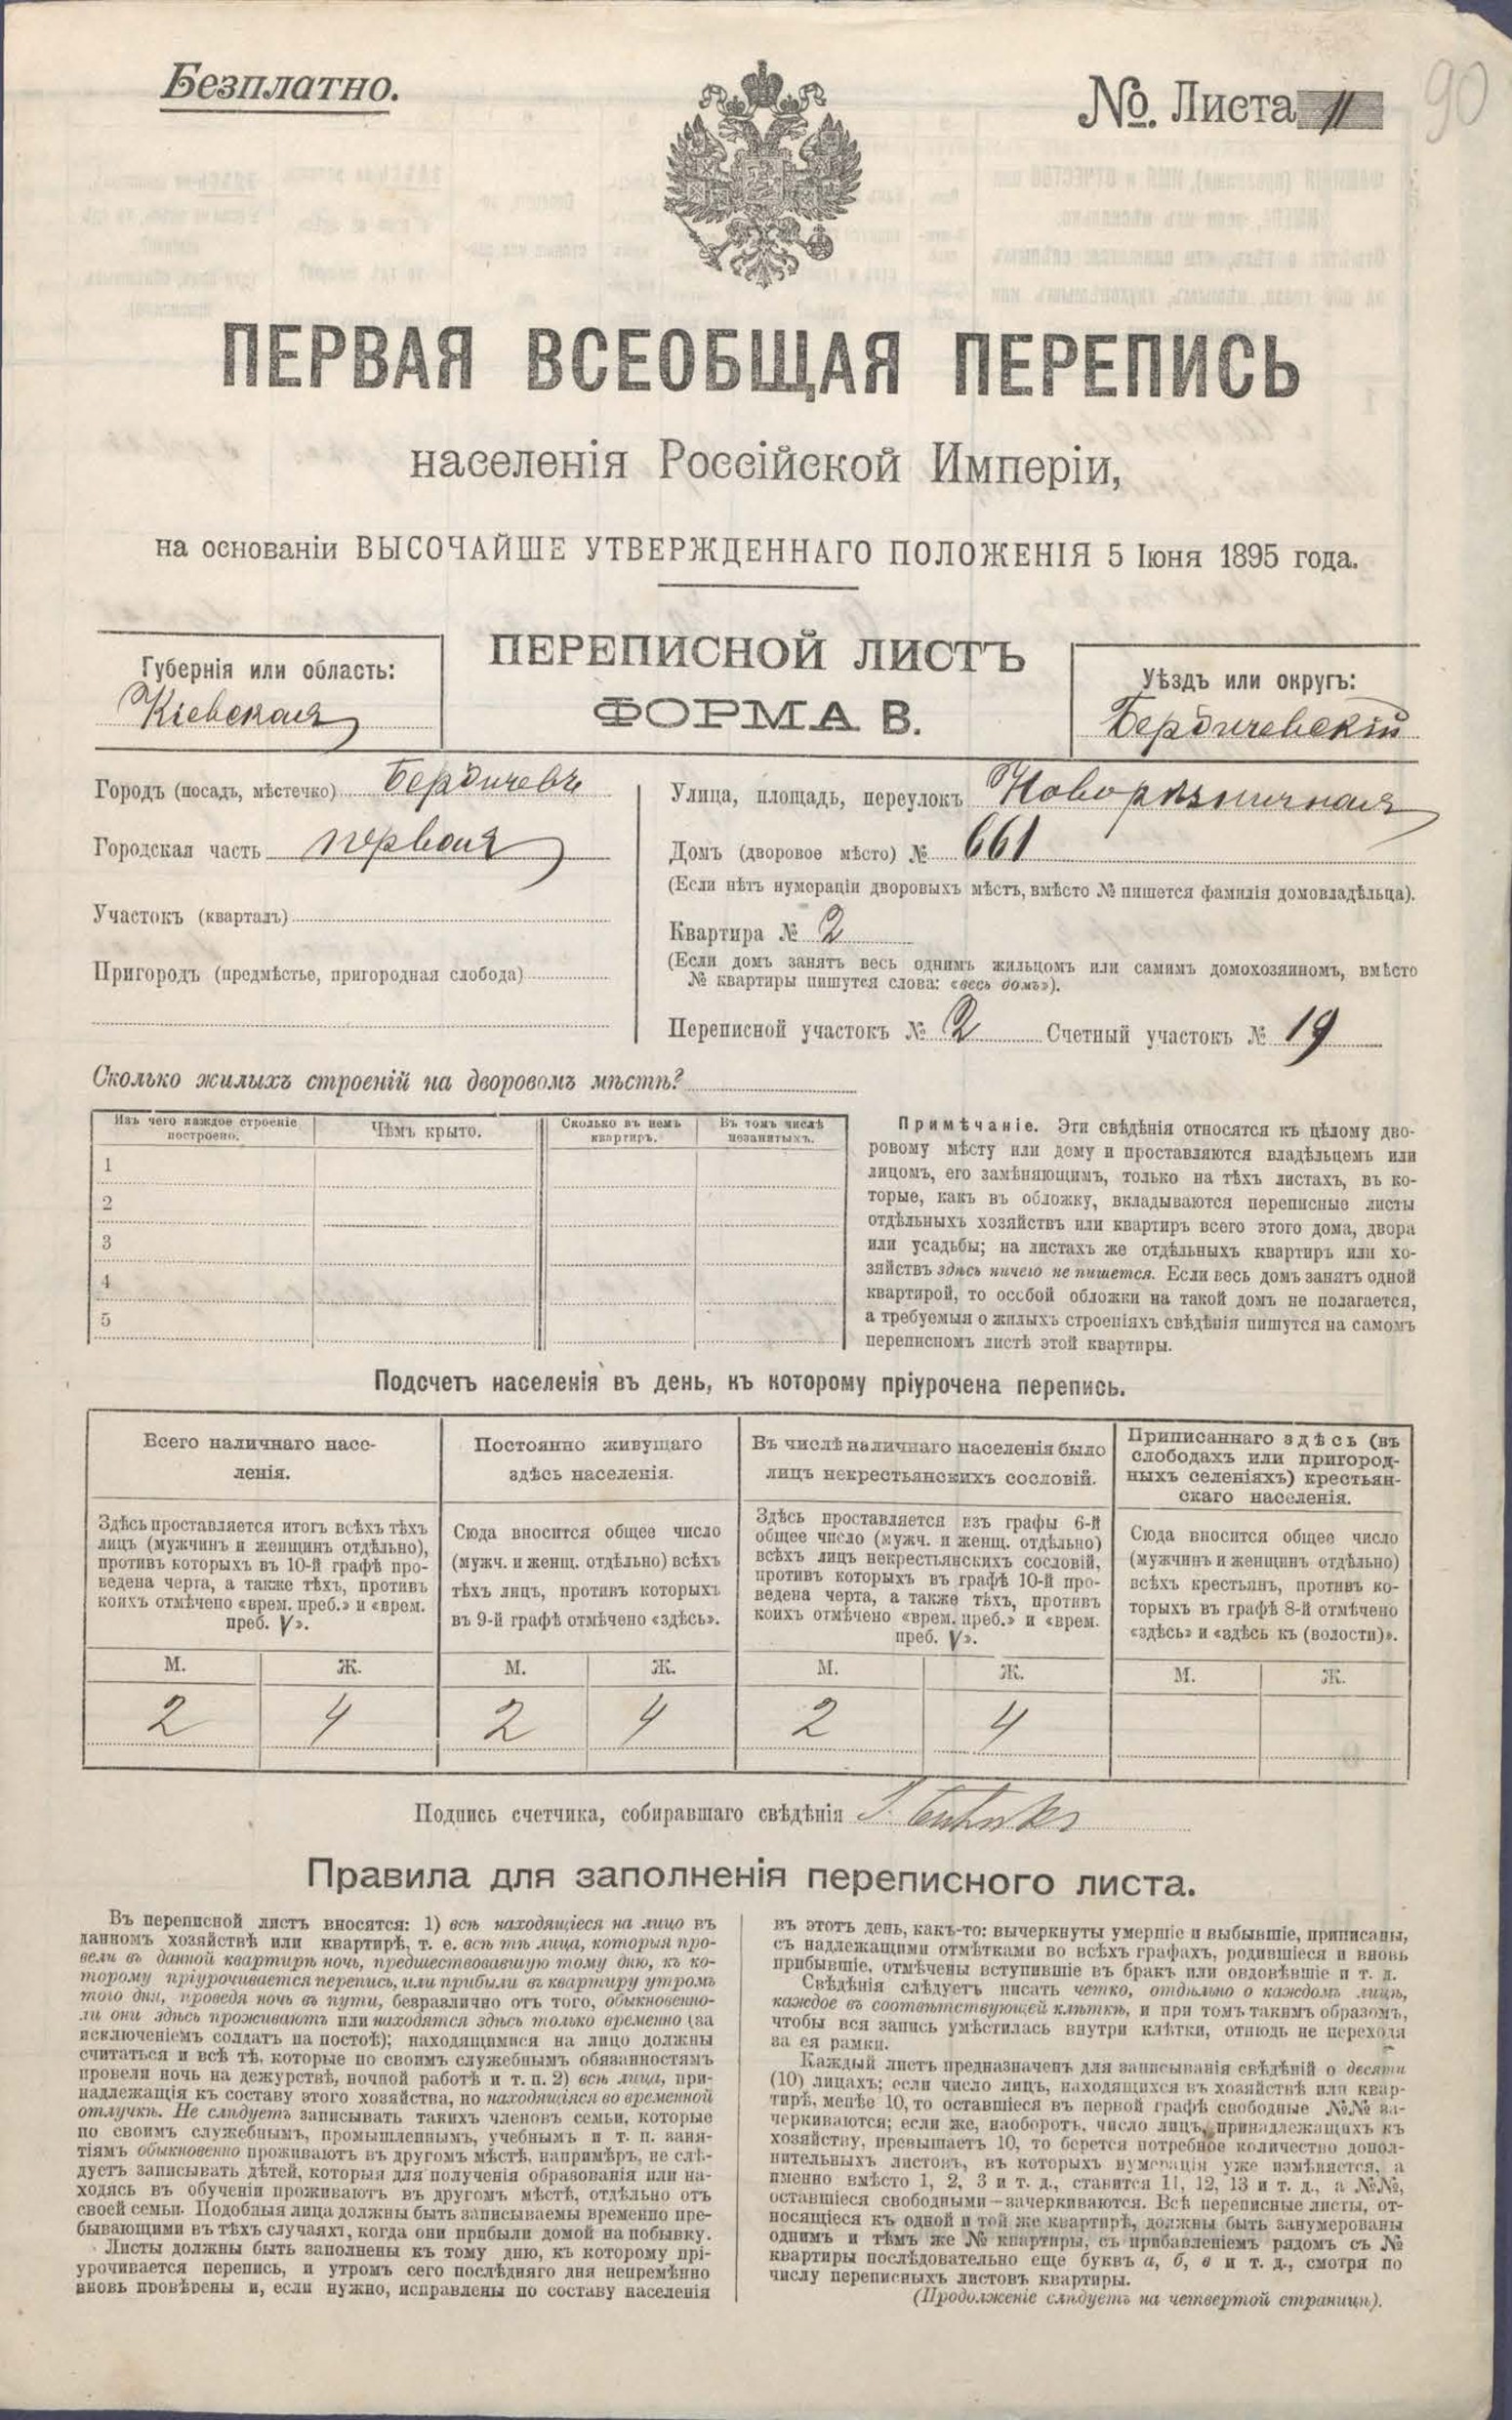 Безплатно.
№. Листа 11
90
ПЕРВАЯ ВСЕОБЩАЯ ПЕРЕПИСЬ
населенія Россійской Имперіи,
на основаніи ВЫСОЧАЙШЕ УТВЕРЖДЕННАГО ПОЛОЖЕНІЯ 5 Іюня 1895 года.
ПЕРЕПИСНОЙ ЛИСТЪ
ФОРМА В.
Губернія или область:
Кіевская
Уѣздъ или округъ:
Бердичевскій
Городъ (посадъ, мѣстечко) Бердичевъ
Городская часть первая
Участокъ (кварталъ)
Пригородъ (предмѣстье, пригородная слобода)
Улица, площадь, переулокъ Новорѣзничная
Домъ (дворовое мѣсто) № 661
(Если нѣтъ нумераціи дворовыхъ мѣстъ, вмѣсто № пишется фамилія домовладѣльца).
Квартира № 2
(Если домъ занятъ весь однимъ жильцомъ или самимъ домохозяиномъ, вмѣсто
№ квартиры пишутся слова: «весь домъ»).
Переписной участокъ № 2 Счетный участокъ № 19
Сколько жилыхъ строеній на дворовомъ мѣстѣ?
Изъ чего каждое строеніе
построено.
Чѣмъ крыто.
Сколько въ немъ
квартиръ.
Въ томъ числѣ
незанятыхъ.
1
2
3
4
5
Примѣчаніе. Эти свѣдѣнія относятся къ цѣлому дво-
ровому мѣсту или дому и проставляются владѣльцемъ или
лицомъ, его замѣняющимъ, только на тѣхъ листахъ, въ ко-
торые, какъ въ обложку, вкладываются переписные листы
отдѣльныхъ хозяйствъ или квартиръ всего этого дома, двора
или усадьбы; на листахъ же отдѣльныхъ квартиръ или хо-
зяйствъ здѣсь ничего не пишется. Если весь домъ занятъ одной
квартирой, то особой обложки на такой домъ не полагается,
а требуемыя о жилыхъ строеніяхъ свѣдѣнія пишутся на самомъ
переписномъ листѣ этой квартиры.
Подсчетъ населенія въ день, къ которому пріурочена перепись.
Всего наличнаго насе-
ленія.
Здѣсь проставляется итогъ всѣхъ тѣхъ
лицъ (мужчинъ и женщинъ отдѣльно),
противъ которыхъ въ 10-й графѣ про-
ведена черта, а также тѣхъ, противъ
коихъ отмѣчено «врем. преб.» и «врем.
преб. V».
М. Ж.
2 4
Постоянно живущаго
здѣсь населенія.
Сюда вносится общее число
(мужч. и женщ. отдѣльно) всѣхъ
тѣхъ лицъ, противъ которыхъ
въ 9-й графѣ отмѣчено «здѣсь».
М. Ж.
2 4
Въ числѣ наличнаго населенія было
лицъ некрестьянскихъ сословій.
Здѣсь проставляется изъ графы 6-й
общее число (мужч. и женщ. отдѣльно)
всѣхъ лицъ некрестьянскихъ сословій,
противъ которыхъ въ графѣ 10-й про-
ведена черта, а также тѣхъ, противъ
коихъ отмѣчено «врем. преб.» и «врем.
преб. V».
М. Ж.
2 4
Приписаннаго здѣсь (въ
слободахъ или пригород-
ныхъ селеніяхъ) крестьян-
скаго населенія.
Сюда вносится общее число
(мужчинъ и женщинъ отдѣльно)
всѣхъ крестьянъ, противъ ко-
торыхъ въ графѣ 8-й отмѣчено
«здѣсь» и «здѣсь къ (волости)».
М. Ж.
Подпись счетчика, собиравшаго свѣдѣнія
Правила для заполненія переписного листа.
Въ переписной листъ вносятся: 1) всѣ находящіеся на лицо въ
данномъ хозяйствѣ или квартирѣ, т. е. всѣ тѣ лица, которыя про-
вели въ данной квартирѣ ночь, предшествовавшую тому дню, къ ко-
торому пріурочивается перепись, или прибыли въ квартиру утромъ
того дня, проведя ночь въ пути, безразлично отъ того, обыкновенно-
ли они здѣсь проживаютъ или находятся здѣсь только временно (за
исключеніемъ солдатъ на постоѣ); находящимися на лицо должны
считаться и всѣ тѣ, которые по своимъ служебнымъ обязанностямъ
провели ночь на дежурствѣ, ночной работѣ и т. п. 2) всѣ лица, при-
надлежащія къ составу этого хозяйства, но находящіяся во временной
отлучкѣ. Не слѣдуетъ записывать такихъ членовъ семьи, которые
по своимъ служебнымъ, промышленнымъ, учебнымъ и т. п. заня-
тіямъ обыкновенно проживаютъ въ другомъ мѣстѣ, напримѣръ, не слѣ-
дуетъ записывать дѣтей, которыя для полученія образованія или на-
ходясь въ обученіи проживаютъ въ другомъ мѣстѣ, отдѣльно отъ
своей семьи. Подобныя лица должны быть записываемы временно пре-
бывающими въ тѣхъ случаяхъ, когда они прибыли домой на побывку.
Листы должны быть заполнены къ тому дню, къ которому прі-
урочивается перепись, и утромъ сего послѣдняго дня непремѣнно
вновь провѣрены и, если нужно, исправлены по составу населенія
въ этотъ день, какъ-то: вычеркнуты умершіе и выбывшіе, приписаны,
съ надлежащими отмѣтками во всѣхъ графахъ, родившіеся и вновь
прибывшіе, отмѣчены вступившіе въ бракъ или овдовѣвшіе и т. д.
Свѣдѣнія слѣдуетъ писать четко, отдѣльно о каждомъ лицѣ,
каждое въ соотвѣтствующей клѣткѣ, и при томъ такимъ образомъ,
чтобы вся запись умѣстилась внутри клѣтки, отнюдь не переходя
за ея рамки.
Каждый листъ предназначенъ для записыванія свѣдѣній о десяти
(10) лицахъ; если число лицъ, находящихся въ хозяйствѣ или квар-
тирѣ, менѣе 10, то оставшіеся въ первой графѣ свободные №№ за-
черкиваются; если же, наоборотъ, число лицъ, принадлежащихъ къ
хозяйству, превышаетъ 10, то берется потребное количество допол-
нительныхъ листовъ, въ которыхъ нумерація уже измѣняется, а
именно вмѣсто 1, 2, 3 и т. д., ставится 11, 12, 13 и т. д., а №№,
оставшіеся свободными—зачеркиваются. Всѣ переписные листы, от-
носящіеся къ одной и той же квартирѣ, должны быть занумерованы
однимъ и тѣмъ же № квартиры, съ прибавленіемъ рядомъ съ №
квартиры послѣдовательно еще буквъ а, б, в и т. д., смотря по
числу переписныхъ листовъ квартиры.
(Продолженіе слѣдуетъ на четвертой страницѣ).